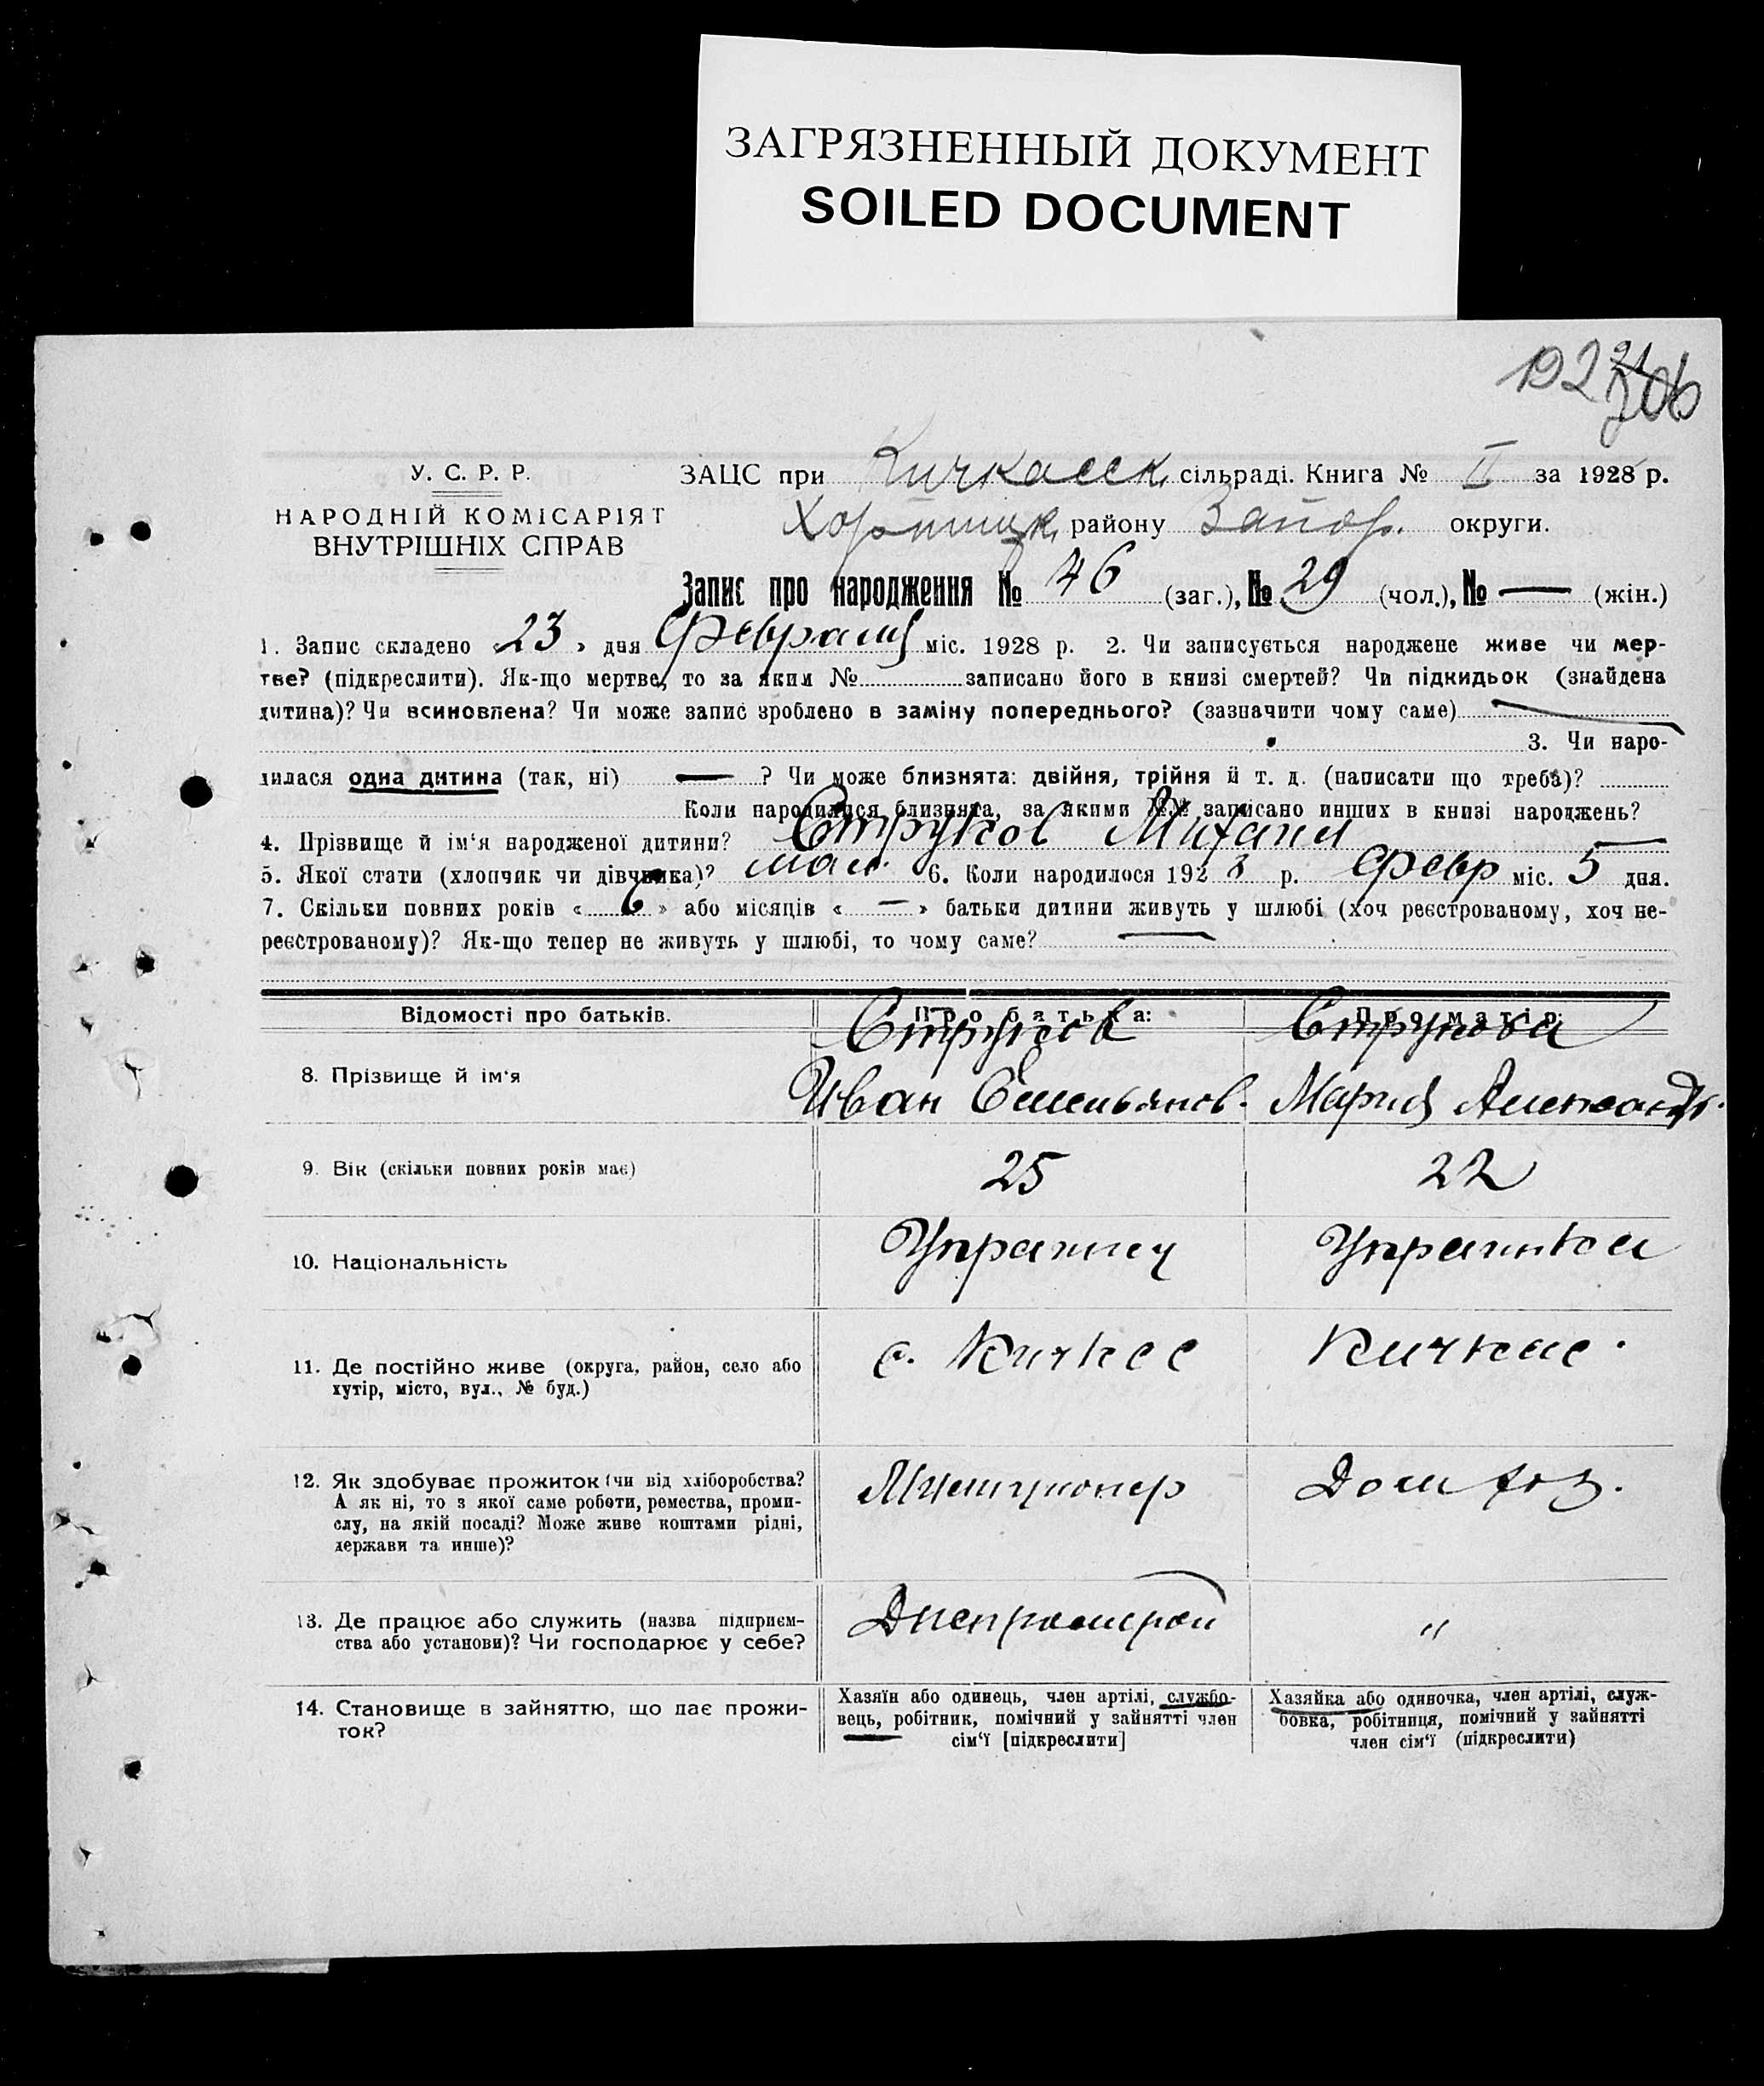 ЗАГРЯЗНЕННЫЙ ДОКУМЕНТ
SOILED DOCUMENT
192
У. С. Р. Р.
НАРОДНІЙ КОМІСАРІЯТ
ВНУТРІШНІХ СПРАВ
ЗАЦС при Кичкасск. сільраді. Книга № II за 1928 р.
Хортицк. району Запор. округи.
Запис про народження № 46 (заг.), № 29 (чол.), № — (жін.)
1. Запис складено «23» дня Февраля міс. 1928 р. 2. Чи записується народжене живе чи мер-
тве? (підкреслити). Як-що мертве, то за яким № записано його в книзі смертей? Чи підкидьок (знайдена
дитина)? Чи всиновлена? Чи може запис зроблено в заміну попереднього? (зазначити чому саме) —
3. Чи наро-
дилася одна дитина (так, ні) — ? Чи може близнята: двійня, трійня й т. д. (написати що треба)?
Коли народилися близнята, за якими №№ записано инших в книзі народжень?
4. Прізвище й ім‘я народженої дитини? Струков Михаил —
5. Якої стати (хлопчик чи дівчинка)? мал. 6. Коли народилося 1928 р. Февр міс. 5 дня.
7. Скільки повних років « 6 » або місяців « — » батьки дитини живуть у шлюбі (хоч реєстрованому, хоч не-
реєстрованому)? Як-що тепер не живуть у шлюбі, то чому саме? —
Відомості про батьків. Про батька: Про матір:
Струков Струкова
8. Прізвище й ім‘я Иван Емельянов. Мария Александр.
9. Вік (скільки повних років має) 25 22
10. Національність Украинец Украинка
11. Де постійно живе (округа, район, село або с. Кичкас Кичкас.
хутір, місто, вул., № буд.)
12. Як здобуває прожиток (чи від хліборобства? Милиционер Дом хоз.
А як ні, то з якої саме роботи, ремества, проми-
слу, на якій посаді? Може живе коштами рідні,
держави та инше)?
13. Де працює або служить (назва підприєм- Днепрострой "
ства або установи)? Чи господарює у себе?
14. Становище в зайняттю, що дає прожи-
ток?
Хазяїн або одинець, член артілі, службо-
вець, робітник, помічний у зайнятті член
сім‘ї [підкреслити]
Хазяйка або одиночка, член артілі, служ-
бовка, робітниця, помічний у зайнятті
член сім‘ї (підкреслити)